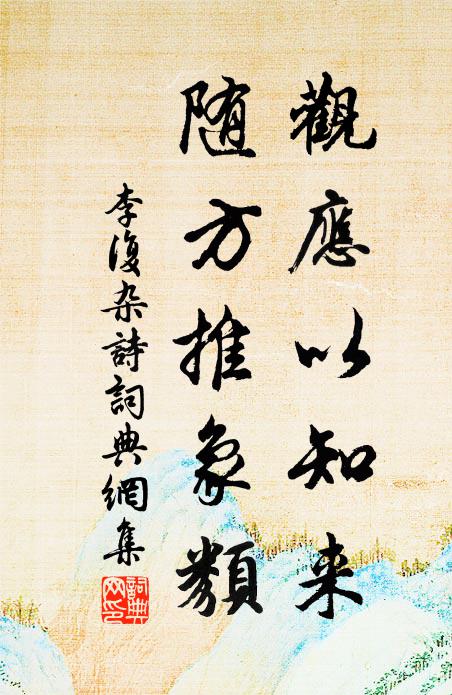 觀應以知来
随方推象類
李復杂詩詞典網集
詞典网印